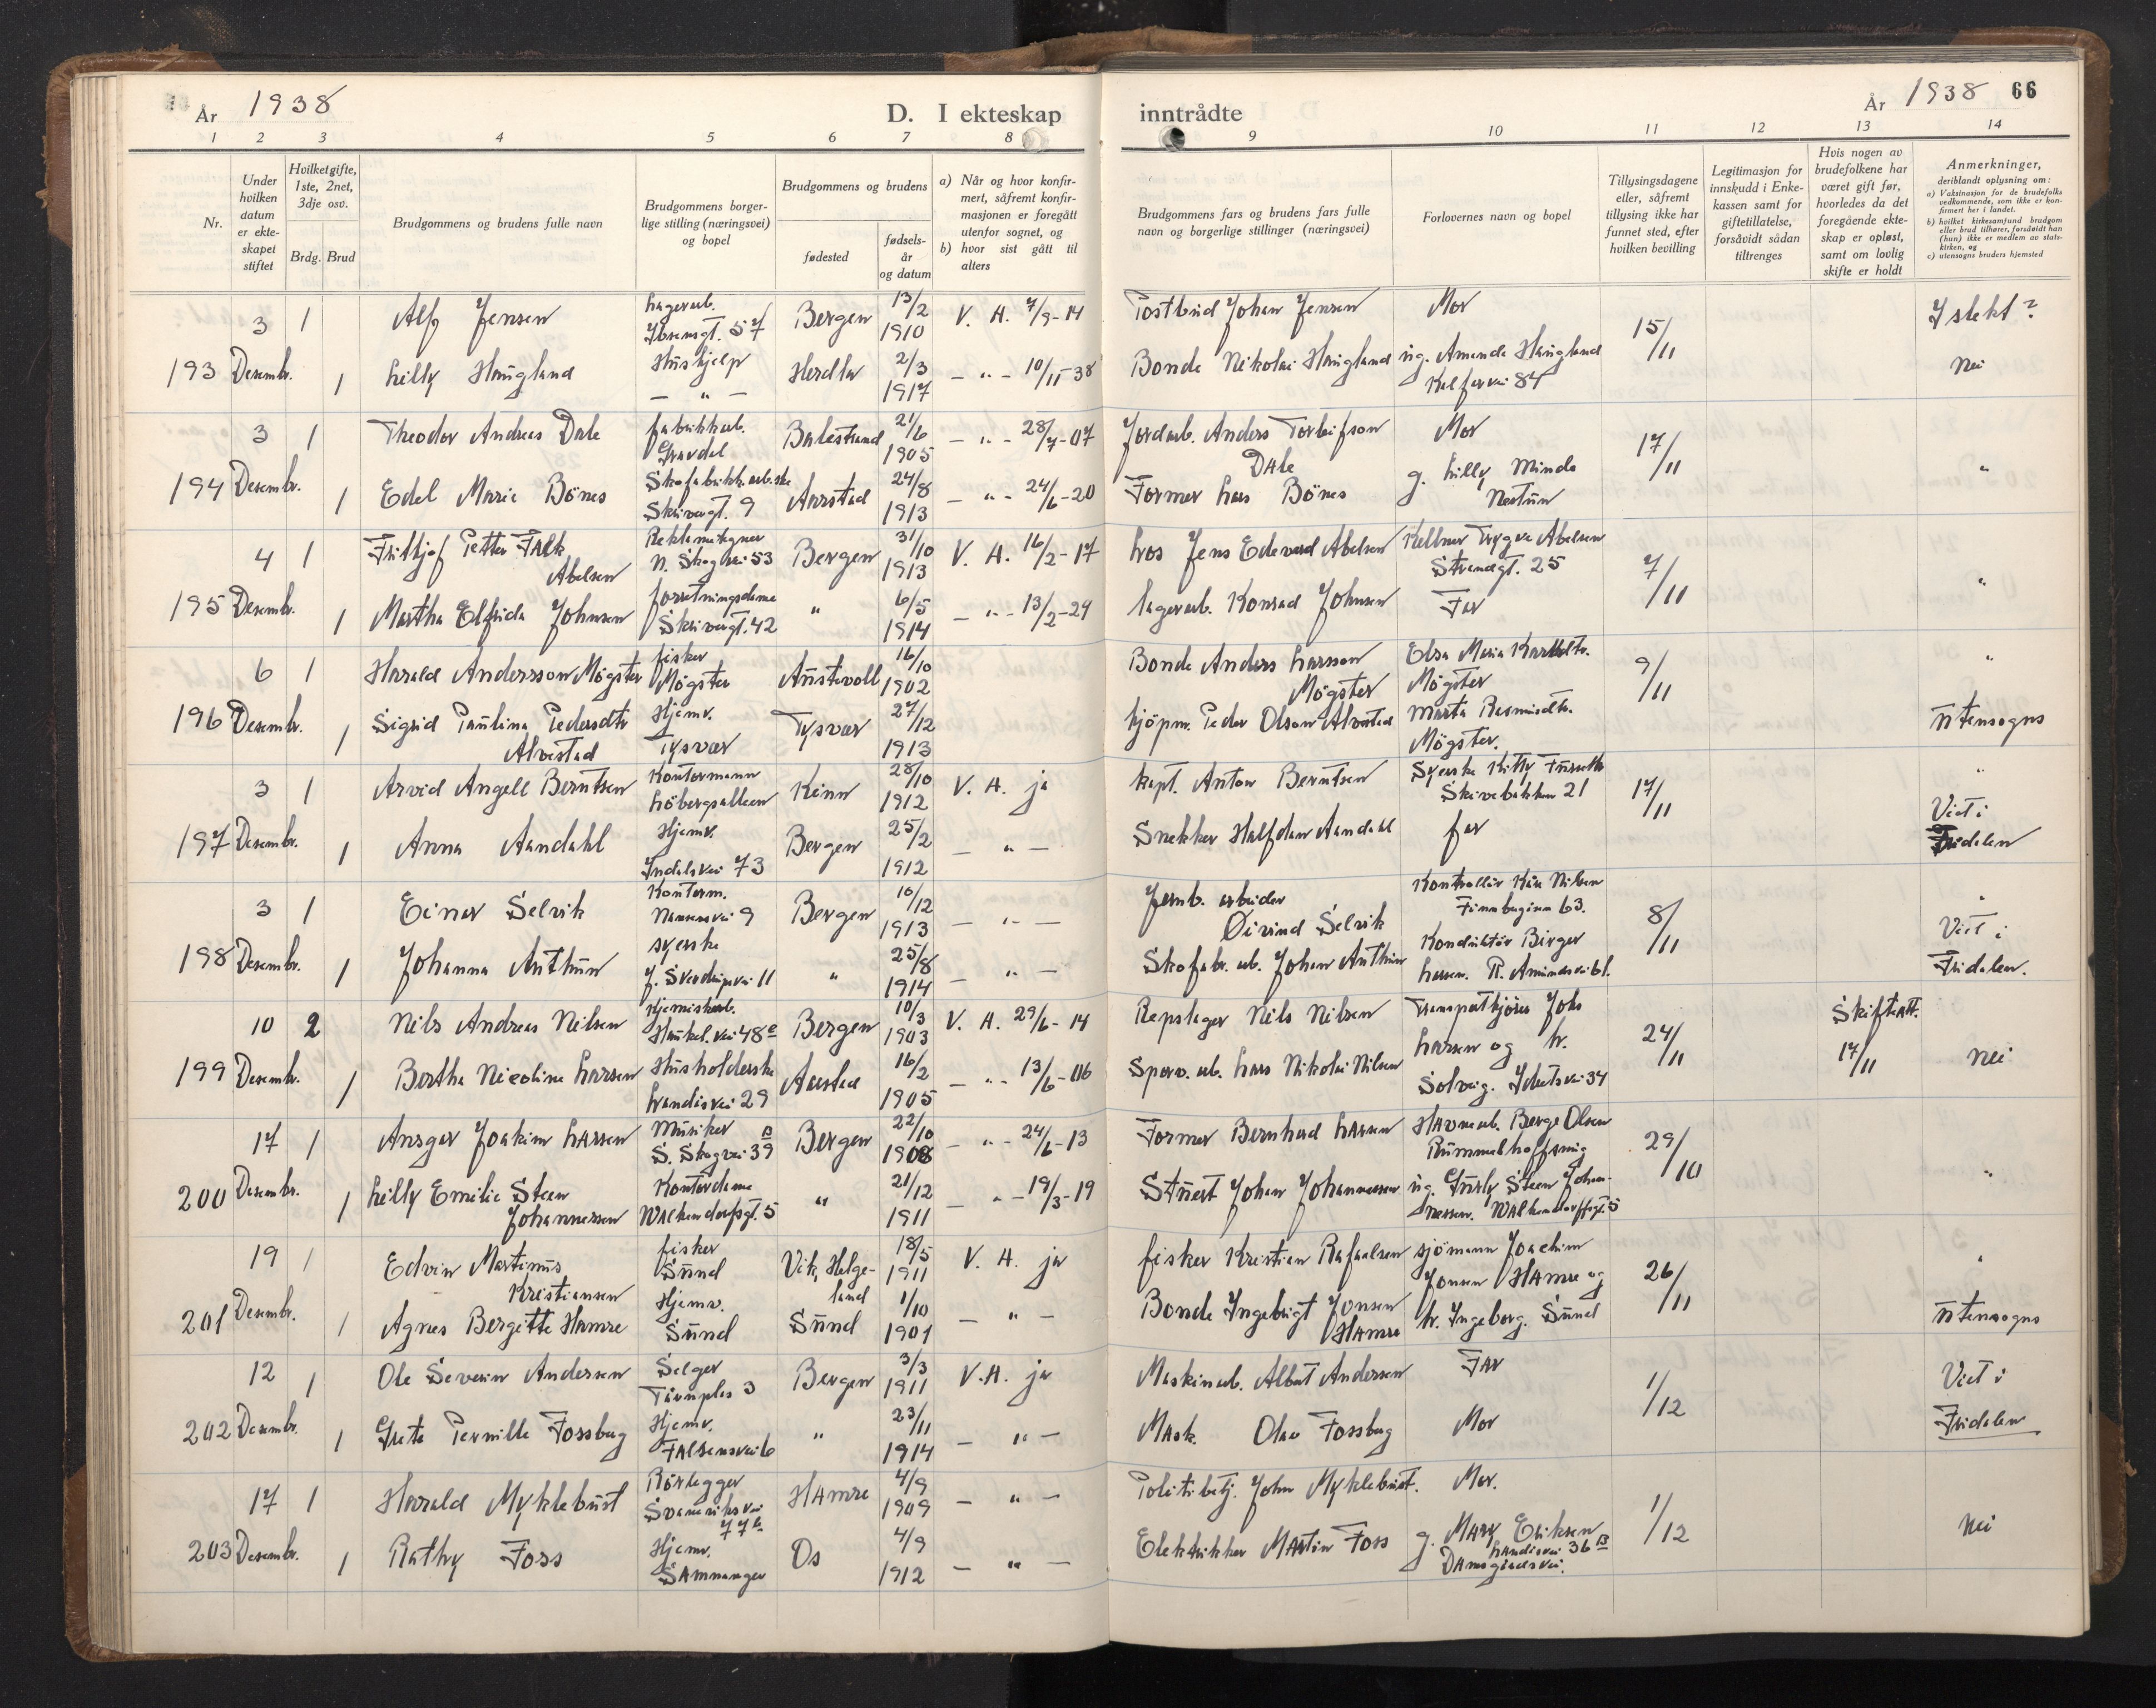 År 1938
D. I ekteskap
inntrådte
År 1938 66
1 2 3 4 5 6 7 8 9 10 11 12 13 14
Nr.
Under hvilken datum er ekteskapet stiftet
Hvilketgifte, 1ste, 2net, 3dje osv.
Brdg. Brud
Brudgommens og brudens fulle navn
Brudgommens borgerlige stilling (næringsvei) og bopel
Brudgommens og brudens
fødested
fødselsår og datum
a) Når og hvor konfirmert, såfremt konfirmasjonen er foregått utenfor sognet, og
b) hvor sist gått til alters
Brudgommens fars og brudens fars fulle navn og borgerlige stillinger (næringsvei)
Forlovernes navn og bopel
Tillysingsdagene eller, såfremt tillysing ikke har funnet sted, efter hvilken bevilling
Legitimasjon for innskudd i Enkekassen samt for giftetillatelse, forsåvidt sådan tiltrenges
Hvis nogen av brudefolkene har været gift før, hvorledes da det foregående ekteskap er opløst, samt om lovlig skifte er holdt
Anmerkninger,
deriblandt oplysning om:
a) Vaksinasjon for de brudefolks vedkommende, som ikke er konfirmert her i landet.
b) hvilket kirkesamfund brudgom eller brud tilhører, forsåvidt han (hun) ikke er medlem av statskirken, og
c) utensogns bruders hjemsted
3 1 Alf Jensen Lagerarb. Ibsensgt. 57 Bergen 13/2 1910 V. A. 7/9-14 Postbud Johan Jensen Mor 15/11 I slekt?
193 Desembr. 1 Lilly Haugland Hushjelp — " — Herdla 2/3 1917 — " - 10/11-38 Bonde Nikolai Haugland ug. Amanda Haugland Kalfarvei 84 Nei
3 1 Theodor Andreas Dale fabrikkarb. Gravdal Balestrand 21/6 1905 — " - 28/7-07 Jordarb. Anders Torleifson Dale Mor 17/11
194 Desembr. 1 Edel Marie Bönes Skofabrikkarb.ske Skriverg. 9 Aarstad 24/8 1913 — " - 24/6-20 Former Lars Bönes g. Lilly Minde Nestun "
4 1 Fritjof Petter Falk Abelsen Reklametegner N. Skogvei 53 Bergen 31/10 1913 V. A. 16/2-17 Los Jens Edevard Abelsen Kellner Trygve Abelsen Strandgt. 25 7/11
195 Desembr. 1 Martha Elfrida Johnsen forretningsdame Skrivergt. 42 " 6/5 1914 — " - 13/2-29 lagerarb. Konrad Johnsen Far "
6 1 Harald Andersson Møgster fisker Møgster Austevoll 16/10 1902 Bonde Anders Larsson Møgster Elsa Maria Karlsdtr. Møgster 9/11 "
196 Desembr. 1 Sigrid Paulina Pedersdtr Alvestad Hjemv. Tysvær Tysvær 27/12 1913 kjöpm. Peder Olson Alvestad Marta Rasmusdtr. Møgster. utensogns
3 1 Arvid Angell Berntsen Kontormann Löbergsalleen Kinn 28/10 1912 V. A. ja kapt. Anton Berntsen Syerske Kitty Furseth Skivebakken 21 17/11 "
197 Desembr. 1 Anna Aandahl Hjemv. Indalsvei 73 Bergen 25/2 1912 — " — Snekker Halfdan Aandahl far Viet i Fridalen
3 1 Einar Selvik Kontorm. Nansensvei 9 Bergen 10/12 1913 — " — Jernb. arbeider Öivind Selvik Kontrollör Kåre Nilsen Finnbergåsen 63. 8/11 "
198 Desembr. 1 Johanna Anthun syerske J. Sverdrupsvei 11 " 25/8 1914 — " — Skofabr. arb. Johan Anthun Konduktör Birger Larsen. R. Amundsvei 61. Viet i Fridalen.
10 2 Nils Andreas Nilsen Kjemiskarb. Haukel. vei 48e Bergen 10/3 1903 V. A. 29/6-14 Repslager Nils Nilsen Transportkjörer Johs Larsen og h. 24/11 Skifteatt. 17/11
199 Desembr. 1 Bertha Nicoline Larsen Husholderske Landåsvei 29 Aarstad 16/2 1905 — " - 13/6-06 Sporv. arb. Lars Nikolai Nilsen Solveig. Ibsensvei 34 Nei
17 1 Ansgar Joakim Larsen Musiker S. Skogvei 39 B Bergen 22/10 1908 — " - 24/6-13 Former Bernhard Larsen Havnearb. Berge Olsen Rummelhoffsmug 29/10
200 Desembr. 1 Lilly Emilie Steen Johannessen Kontordame Walkendorfsgt. 5 " 21/12 1911 — " - 19/3-19 Stuert Johan Johannessen ug. Gurly Steen Johannessen. Walkendorffsgt. 5 "
19 1 Edvin Martinus Kristiansen fisker Sund Vik, Helgeland 18/5 1911 V. A. ja fisker Kristian Rafaelsen sjömann Joachim Jonsen Hamre og 26/11 "
201 Desembr. 1 Agnes Bergitte Hamre Hjemv. Sund Sund 1/10 1901 — " — Bonde Ingebrigt Jonsen Hamre h. Ingeborg. Sund utensogns
12 1 Ole Severin Andersen Selger Tårnplas 3 Bergen 3/3 1911 V. A. ja Maskinarb. Albert Andersen Far 1/12 Viet i
202 Desembr. 1 Grete Pernille Fossberg Hjemv. Falsensvei 6 " 23/11 1914 — " — Mask. Olav Fossberg Mor Fridalen
17 1 Harald Myklebust Rörlegger Svaneviksvei 77 b Hamre 4/9 1909 — " — Politibetj. John Myklebust. Mor. 1/12
203 Desembr. 1 Rathy Foss Hjemv. Samnanger Os 4/9 1912 — " — Elektrikker Martin Foss g. Mary Eriksen Landåsvei 36 B Damsgårdsvei. Nei